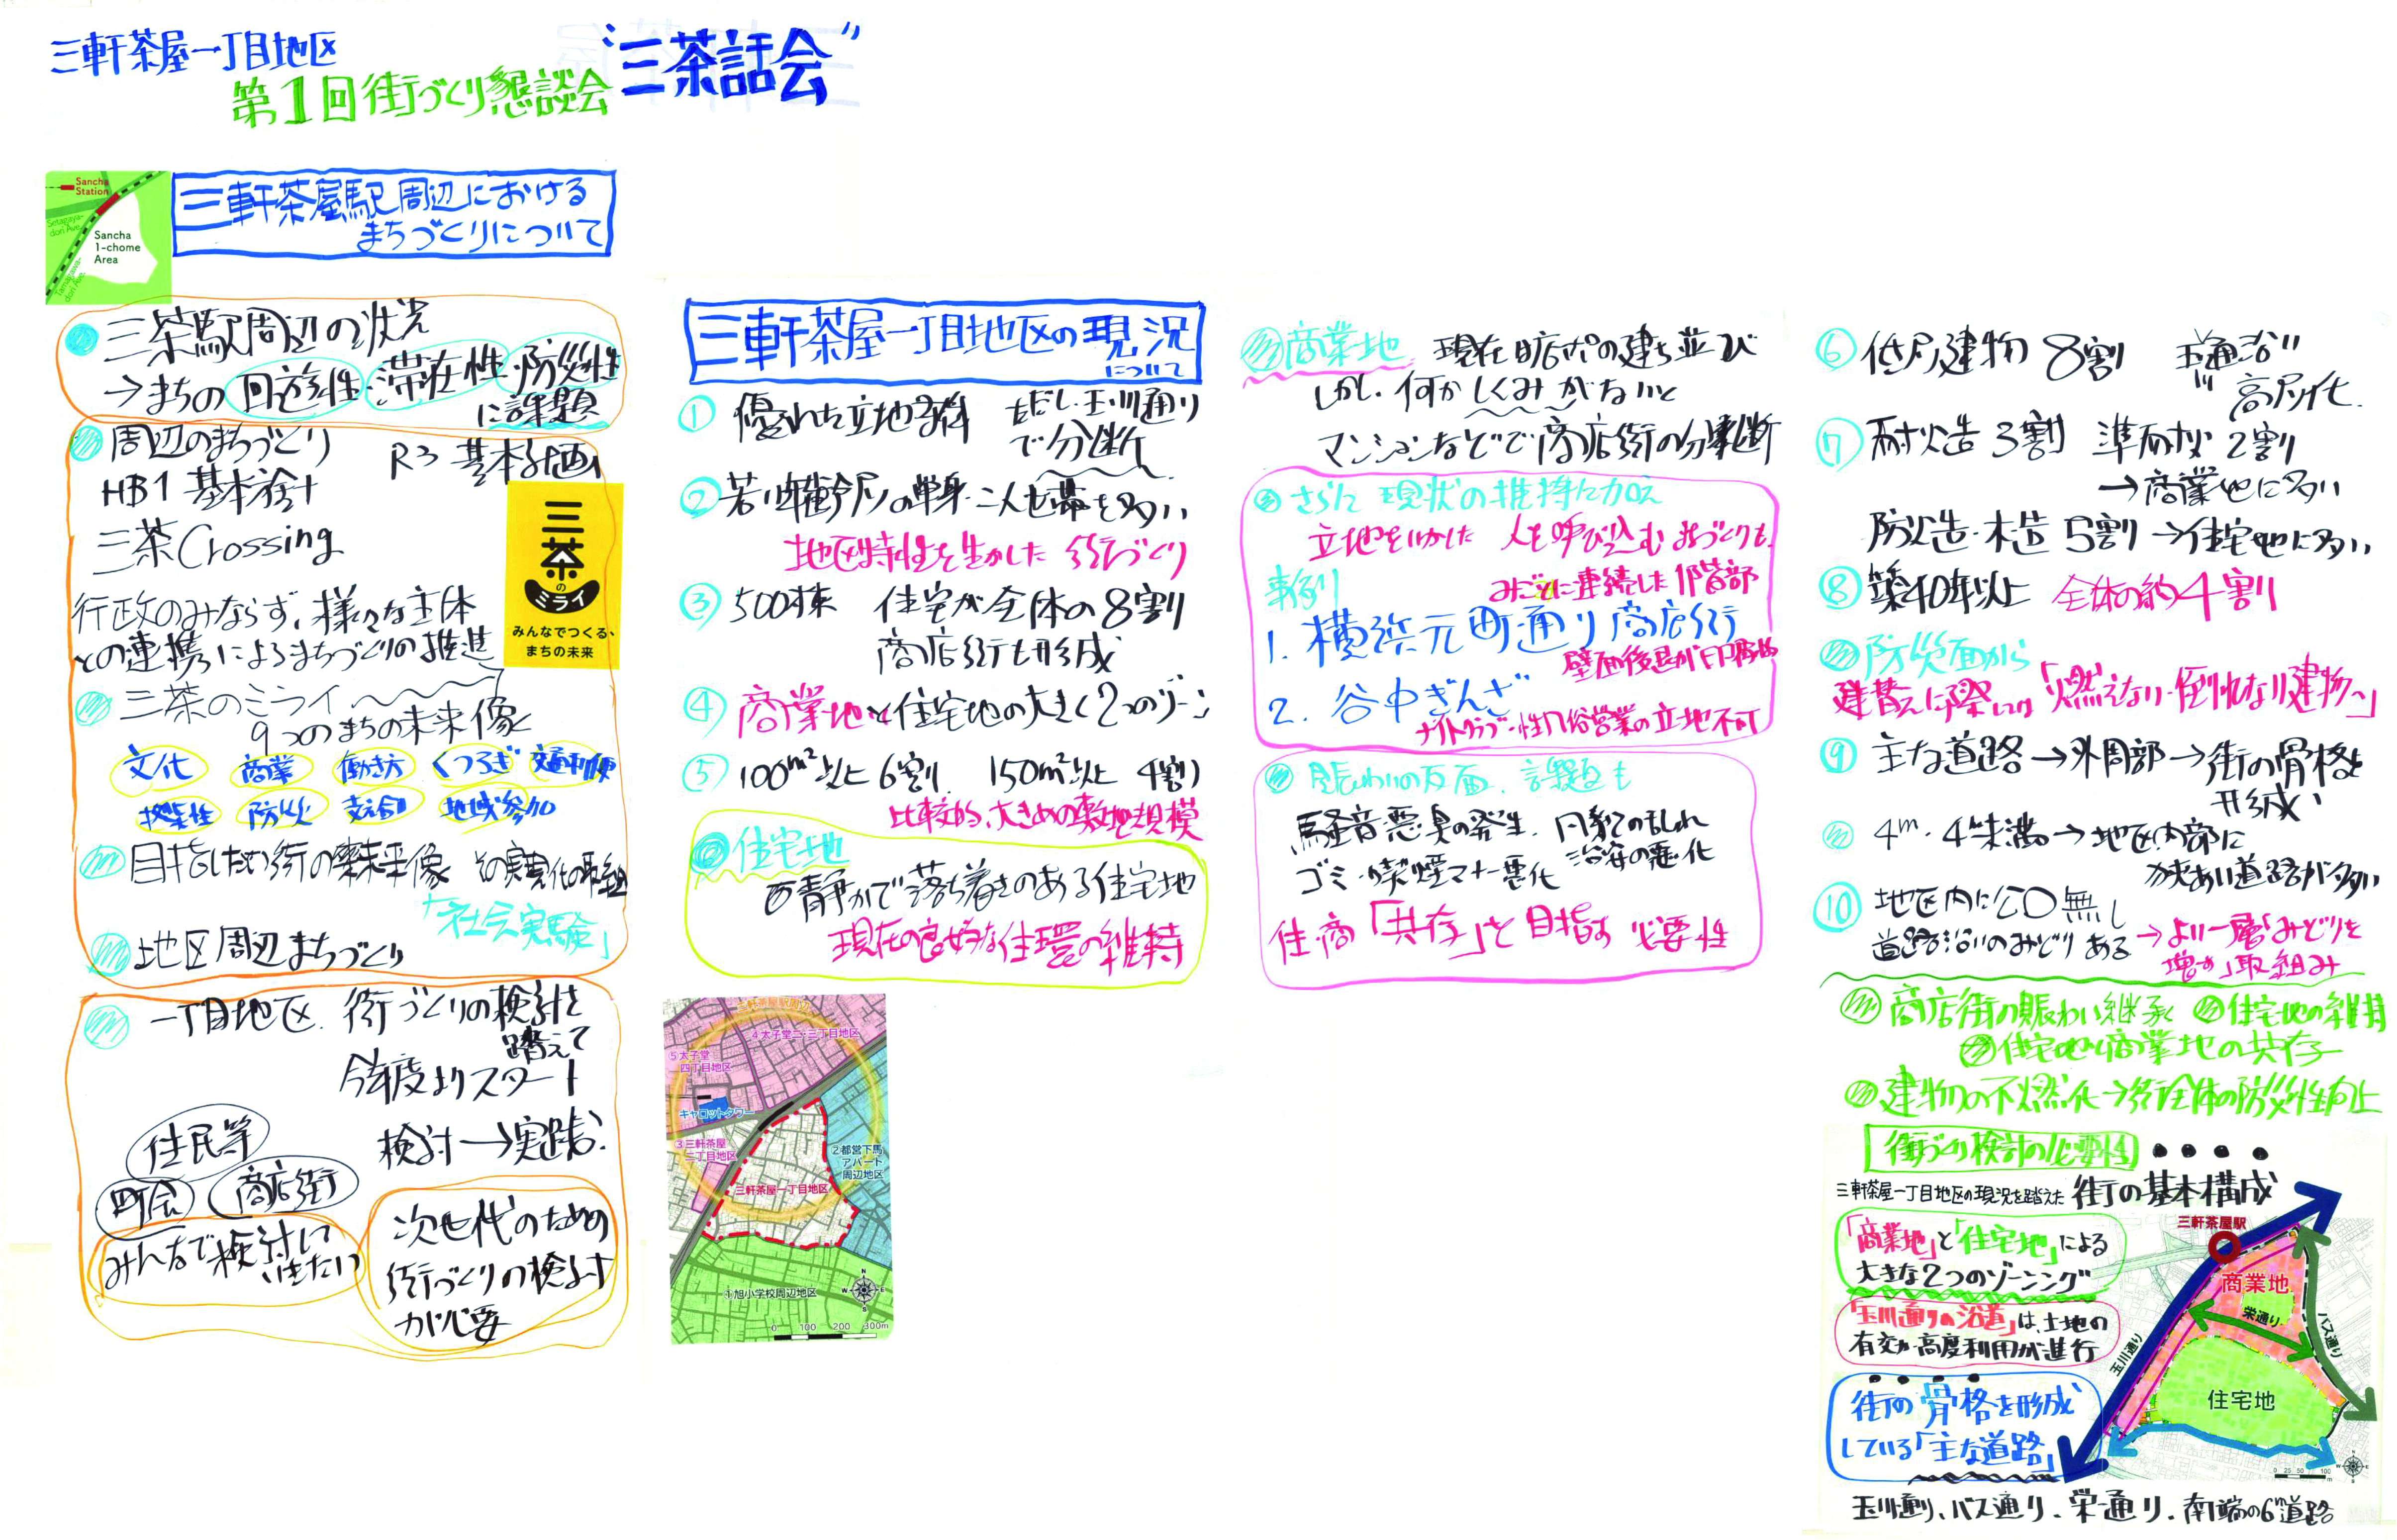 三軒茶屋一丁目地区
第1回街づくり懇談会
"三茶話会"
Sancha
Station
Setagaya-
dori Ave.
Sancha
1-chome
Area
Tamagawa-
dori Ave.
三軒茶屋駅周辺における
まちづくりについて
三茶駅周辺の状況
→まちの回遊性・滞在性・防災性
に課題
周辺のまちづくり
H31 基本方針
R3 基本計画
三茶Crossing
行政のみならず、様々な主体
との連携によるまちづくりの推進
三茶
の
ミライ
みんなでつくる、
まちの未来
三茶のミライ
9つのまちの未来像
文化 商業 働き方 くつろぎ 交通利便
拠点性 防災 支え合い 地域参加
目指したい街の未来像 その実現化の取組
「社会実験」
地区周辺まちづくり
一丁目地区 街づくりの検討を
踏えて
今年度よりスタート
検討→実践
住民等
町会
商店街
みんなで検討して
いきたい
次世代のための
街づくりの検討
が必要
三軒茶屋一丁目地区の現況
について
① 優れた立地条件 ただし玉川通り
で分断
② 若い年齢層の単身・二人世帯も多い
地区特性を生かした街づくり
③ 500棟 住宅が全体の8割
商店街も形成
④ 商業地と住宅地の大きく2つのゾーン
⑤ 100m²以上 6割 150m²以上 4割
比較的、大きめの敷地規模
住宅地
静かで落ち着きのある住宅地
現在の良好な住環の維持
三軒茶屋駅周辺
④太子堂二・三丁目地区
⑤太子堂
四丁目地区
キャロットタワー
③三軒茶屋
二丁目地区
②都営下馬
アパート
周辺地区
三軒茶屋一丁目地区
①旭小学校周辺地区
N
W E
S
0 100 200 300m
商業地 現在は店舗の建ち並び
しかし、何かしくみがないと
マンションなどで商店街の分断
さらに現状の維持に加え
立地をいかした 人を呼び込むまちづくりも
事例
みごとに連続した1階部
1. 横浜元町通り商店街
壁面後退が
2. 谷中ぎんざ
ナイトクラブ・性風俗営業の立地不可
賑わいの反面、課題も
騒音悪臭の発生、円滑の乱れ
ゴミ・喫煙マナー悪化 治安の悪化
住・商「共存」を目指す必要性
⑥ 低層建物 8割 玉通沿い
高層化
⑦ 耐火造 3割 準耐火 2割
→商業地に多い
防火造・木造 5割→住宅地に多い
⑧ 築40年以上 全体の約4割
防災面から
建替えに際しては「燃えない・倒れない建物へ」
⑨ 主な道路→外周部→街の骨格を
形成
4m・4未満→地区内部に
狭あい道路が多い
⑩ 地区内に公口無し
道路沿いのみどりある→より一層みどりを
増やす取組み
商店街の賑わい継承 住宅地の維持
住宅地と商業地の共存
建物の不燃化→街全体の防災性向上
街づくり検討の必要性
三軒茶屋一丁目地区の現況を踏えた 街の基本構成
「商業地」と「住宅地」による
大きな2つのゾーニング
「玉川通りの沿道」は、土地の
有効・高度利用が進行
街の骨格を形成
している「主な道路」
三軒茶屋駅
商業地
栄通り
バス通り
玉川通り
住宅地
0 25 50 100
m
玉川通り、バス通り、栄通り、南端の6m道路